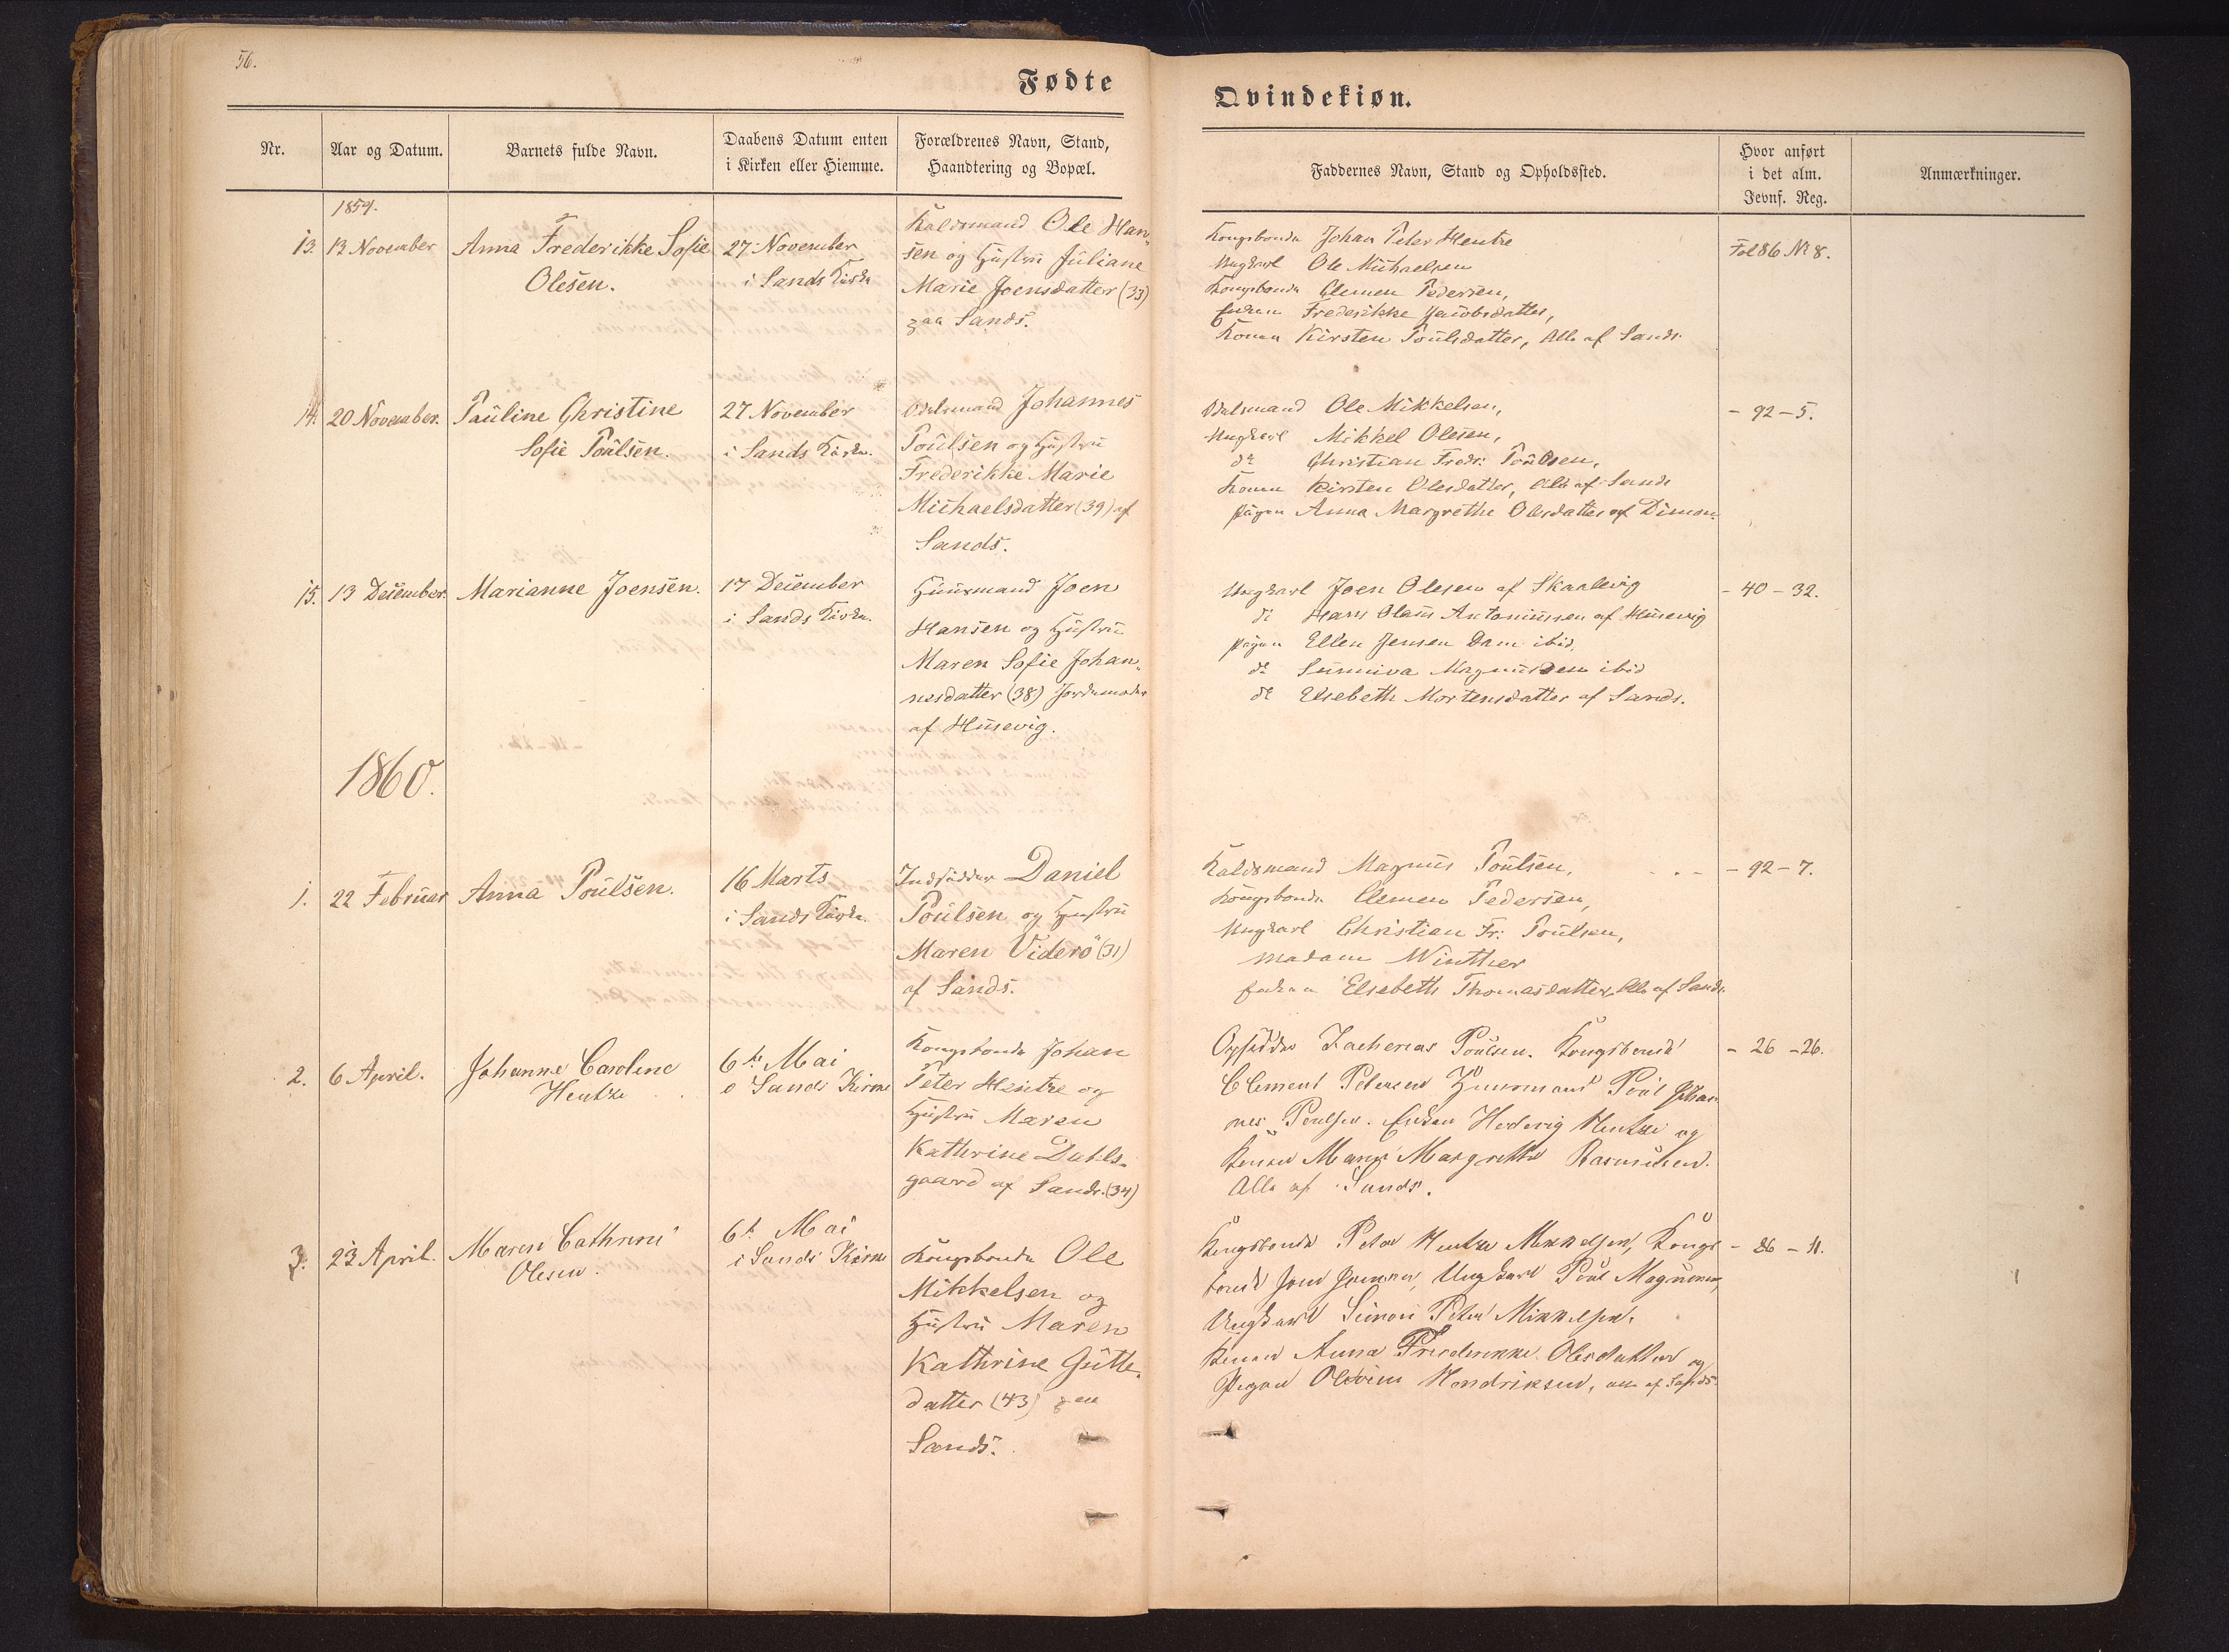 56.
Fødte
Nr.
Aar og Datum.
Barnets fulde Navn.
Daabens Datum enten
i Kirken eller Hiemme.
Forældrenes Navn, Stand,
Haandtering og Bopæl.
1859.
13.
13 November
Anna Frederikke Sofie
Olesen.
27 November
i Sands Kirke
Ole Han-
sen og Hustru Juliane
Marie Joensdatter (33)
paa Sands.
14.
20 November.
Pauline Christine
Sofie Poulsen.
27 November
i Sands Kirke.
Odelsmand Johannes
Poulsen og Hustru
Frederikke Marie
Michaelsdatter (39) af
Sands.
15.
13 December.
Marianne Joensen.
17 December
i Sands Kirke.
Huusmand Joen
Hansen og Hustru
Maren Sofie Johan-
nesdatter (38) Jordemoder
af Husevig.
1860.
1.
22 Februar
Anna Poulsen.
16 Marts
i Sands Kirke.
Indsidder Daniel
Poulsen og Hustru
Maren Viderö (31)
af Sands.
2.
6 April.
Johanne Caroline
Hentze
6te Mai
i Sands Kirke
Kongsbonde Johan
Peter Hentze og
Hustru Maren
Kathrine Dahls-
gaard af Sands. (34)
3.
23 April.
Maren Cathrine
Olesen.
6te Mai
i Sands Kirke
Kongsbonde Ole
Mikkelsen og
Hustru Maren
Kathrine Gutte-
datter (43) paa
Sands.
Qvindekiøn.
Faddernes Navn, Stand og Opholdssted.
Hvor anført
i det alm.
Jevnf. Reg.
Anmærkninger.
Kongsbonde Johan Peter Hentze
Ungkarl Ole Michaelsen
Kongsbonde Clemen Pedersen,
Enken Frederikke Jacobsdatter,
Konen Kirsten Poulsdatter, Alle af Sands.
Fol 86 Nr 8.
Odelsmand Ole Mikkelsen,
Ungkarl Mikkel Olesen,
do Christian Fredr: Poulsen,
Konen Kirsten Olesdatter, Alle af Sands
Pigen Anna Margrethe Olesdatter af Dimon.
- 92 - 5.
Ungkarl Joen Olesen af Skaalevig
do Hans Olaus Antoniussen af Husevig
Pigen Ellen Jensen Dam ibid.
do Sunniva Magnussen ibid
do Elsebeth Mortensdatter af Sands.
- 40 - 32.
Magnus Poulsen,
Kongsbonde Clemen Pedersen,
Ungkarl Christian Fr: Poulsen,
Madam Winther
Enken Elsebeth Thomasdatter, Alle af Sands.
- 92 - 7.
Opsidder Zacherias Poulsen. Kongsbonde
Clement Petersen Huusmand Poul Johan-
nes Poulsen. Enken Hedevig Hentze og
Konen Maren Margrethe Rasmussen.
Alle af Sands.
- 26 - 26.
Kongsbonde Peter Hentze Mikkelsen, Kongs-
bonde Joen Joensen, Ungkarl Poul Magnussen,
Ungkarl Simon Peter Mikkelsen.
Konen Anna Frederikke Olesdatter og
Pigen Hendriksen, alle af Sands.
- 86 - 11.